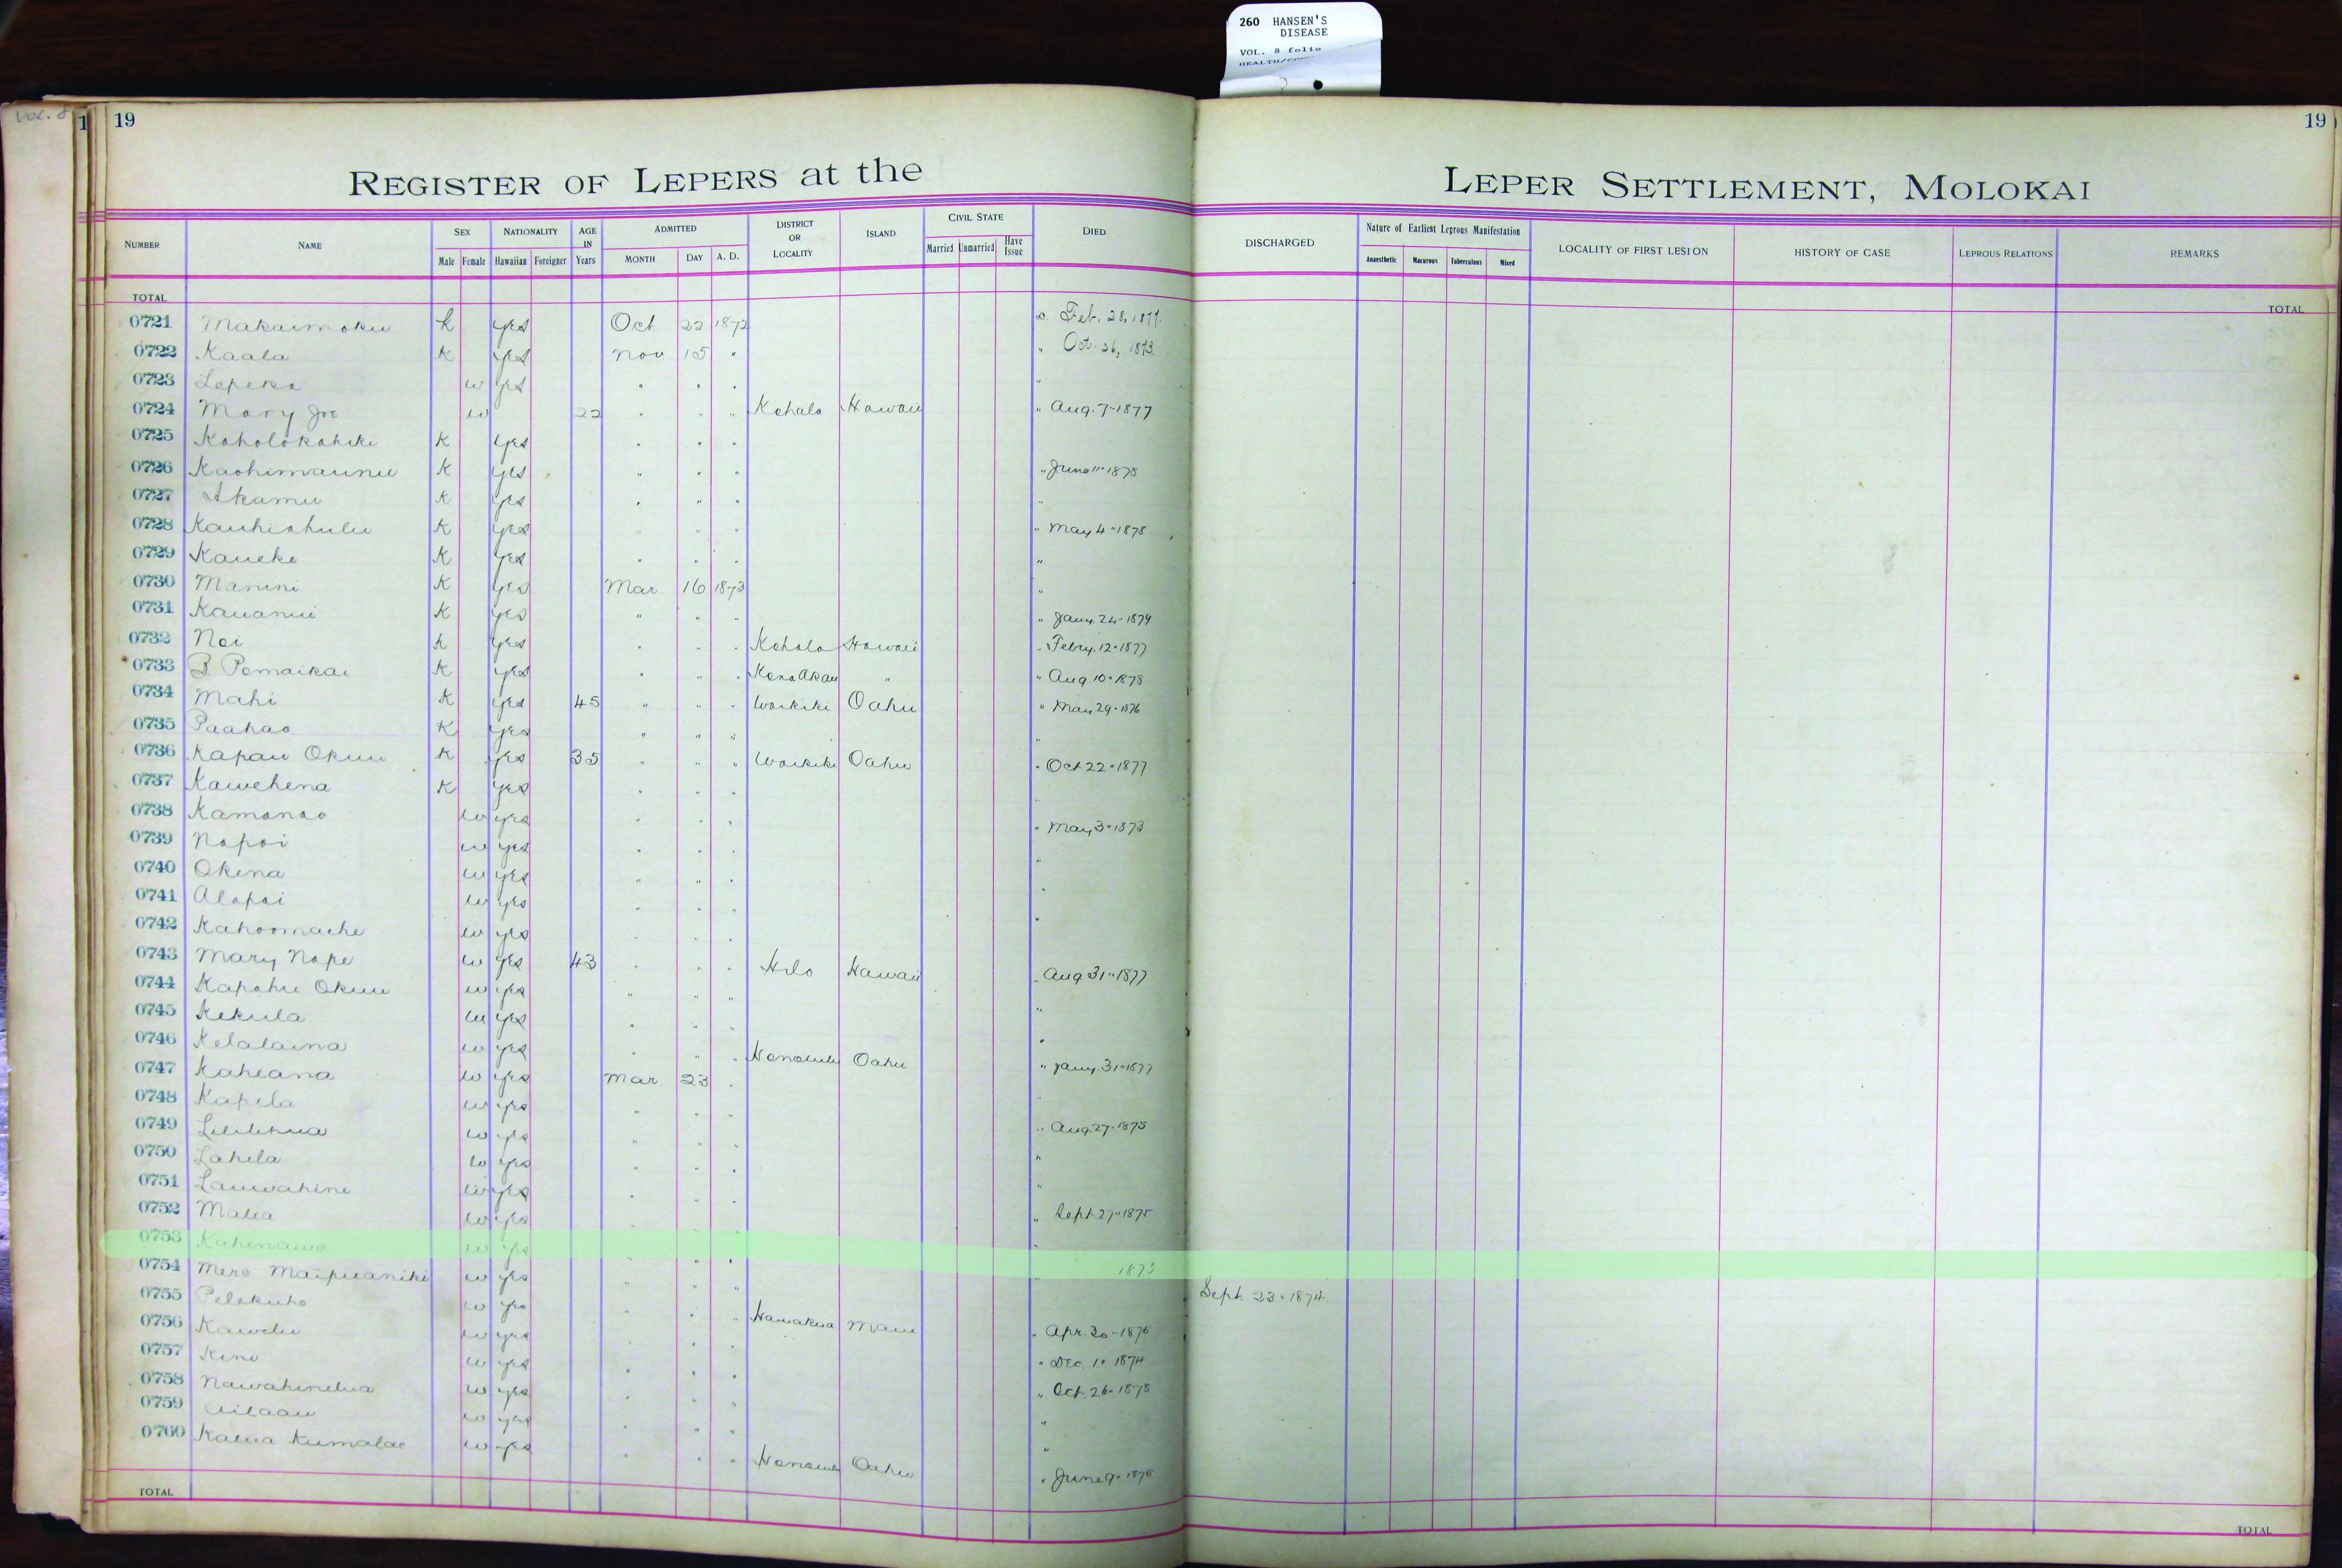 260 HANSEN'S
DISEASE
VOL. 8 folio
Vol. 8
1 19
19
REGISTER OF LEPERS at the LEPER SETTLEMENT, MOLOKAI
NUMBER NAME SEX Male Female NATIONALITY Hawaiian Foreigner AGE IN Years ADMITTED MONTH DAY A. D. DISTRICT OR LOCALITY ISLAND CIVIL STATE Married Unmarried Have Issue DIED DISCHARGED Nature of Earliest Leprous Manifestation Anaesthetic Macurous Tuberculous Mixed LOCALITY OF FIRST LESION HISTORY OF CASE LEPROUS RELATIONS REMARKS
TOTAL TOTAL
0721 Makaimoku k yes Oct 22 1872 Feb. 28, 1877.
0722 Kaala K yes Nov 15 " " Oct. 26, 1873.
0723 Lepeka w yes " " " "
0724 Mary Joe w 22 " " " Kohala Hawaii " Aug. 7 " 1877
0725 Koholokahiki K yes " " "
0726 Kaohimaunu K yes " " " " June 11 " 1878
0727 Akamu K yes " " " "
0728 Kauhiahulu K yes " " " " May 4 " 1878
0729 Kaueke K yes " " " "
0730 Manini K yes Mar 16 1873 "
0731 Kauanui K yes " " " " Jany. 24 " 1879
0732 Noi K yes " " " Kohala Hawaii " Febry. 12 " 1877
0733 B Pomaikai K yes " " " Kona Akau " " Aug 10 " 1878
0734 Mahi K yes 45 " " " Waikiki Oahu " May 29 " 1876
0735 Paahao K yes " " " "
0736 Kapau Okuu K yes 35 " " " Waikiki Oahu " Oct 22 " 1877
0737 Kawehena K yes " " " "
0738 Kamanao w yes " " " " May 3 " 1873
0739 Napoi w yes " " " "
0740 Okina w yes " " " "
0741 Alapai w yes " " " "
0742 Kahoomaehe w yes " " "
0743 Mary Nape w yes 43 " " " Hilo Hawaii " Aug 31 " 1877
0744 Kapahu Okuu w yes " " " "
0745 Kekula w yes " " " "
0746 Kelalaina w yes " " " Honolulu Oahu " Jany. 31 " 1877
0747 Kaheana w yes Mar. 23 " "
0748 Kapela w yes " " " " Aug. 27 " 1875
0749 Lililehua w yes " " " "
0750 Lahela w yes " " " "
0751 Lauwahine w yes " " " " Sept. 27 " 1875
0752 Malia w yes " " " "
0753 Kahinawe w yes " " " " 1873
0754 Mere Maipuaniki w yes " " " Sept. 23 " 1874
0755 Pelekuho w yes " " " Hamakua Maui " Apr. 30 " 1876
0756 Kawelu w yes " " " Dec. 1 " 1874
0757 Kini w yes " " " " Oct. 26 " 1878
0758 Nawahinelua w yes " " " "
0759 Ailaau w yes " " " "
0760 Kalua Kumalae w yes " " " Honolulu Oahu " June 9 " 1876
TOTAL TOTAL